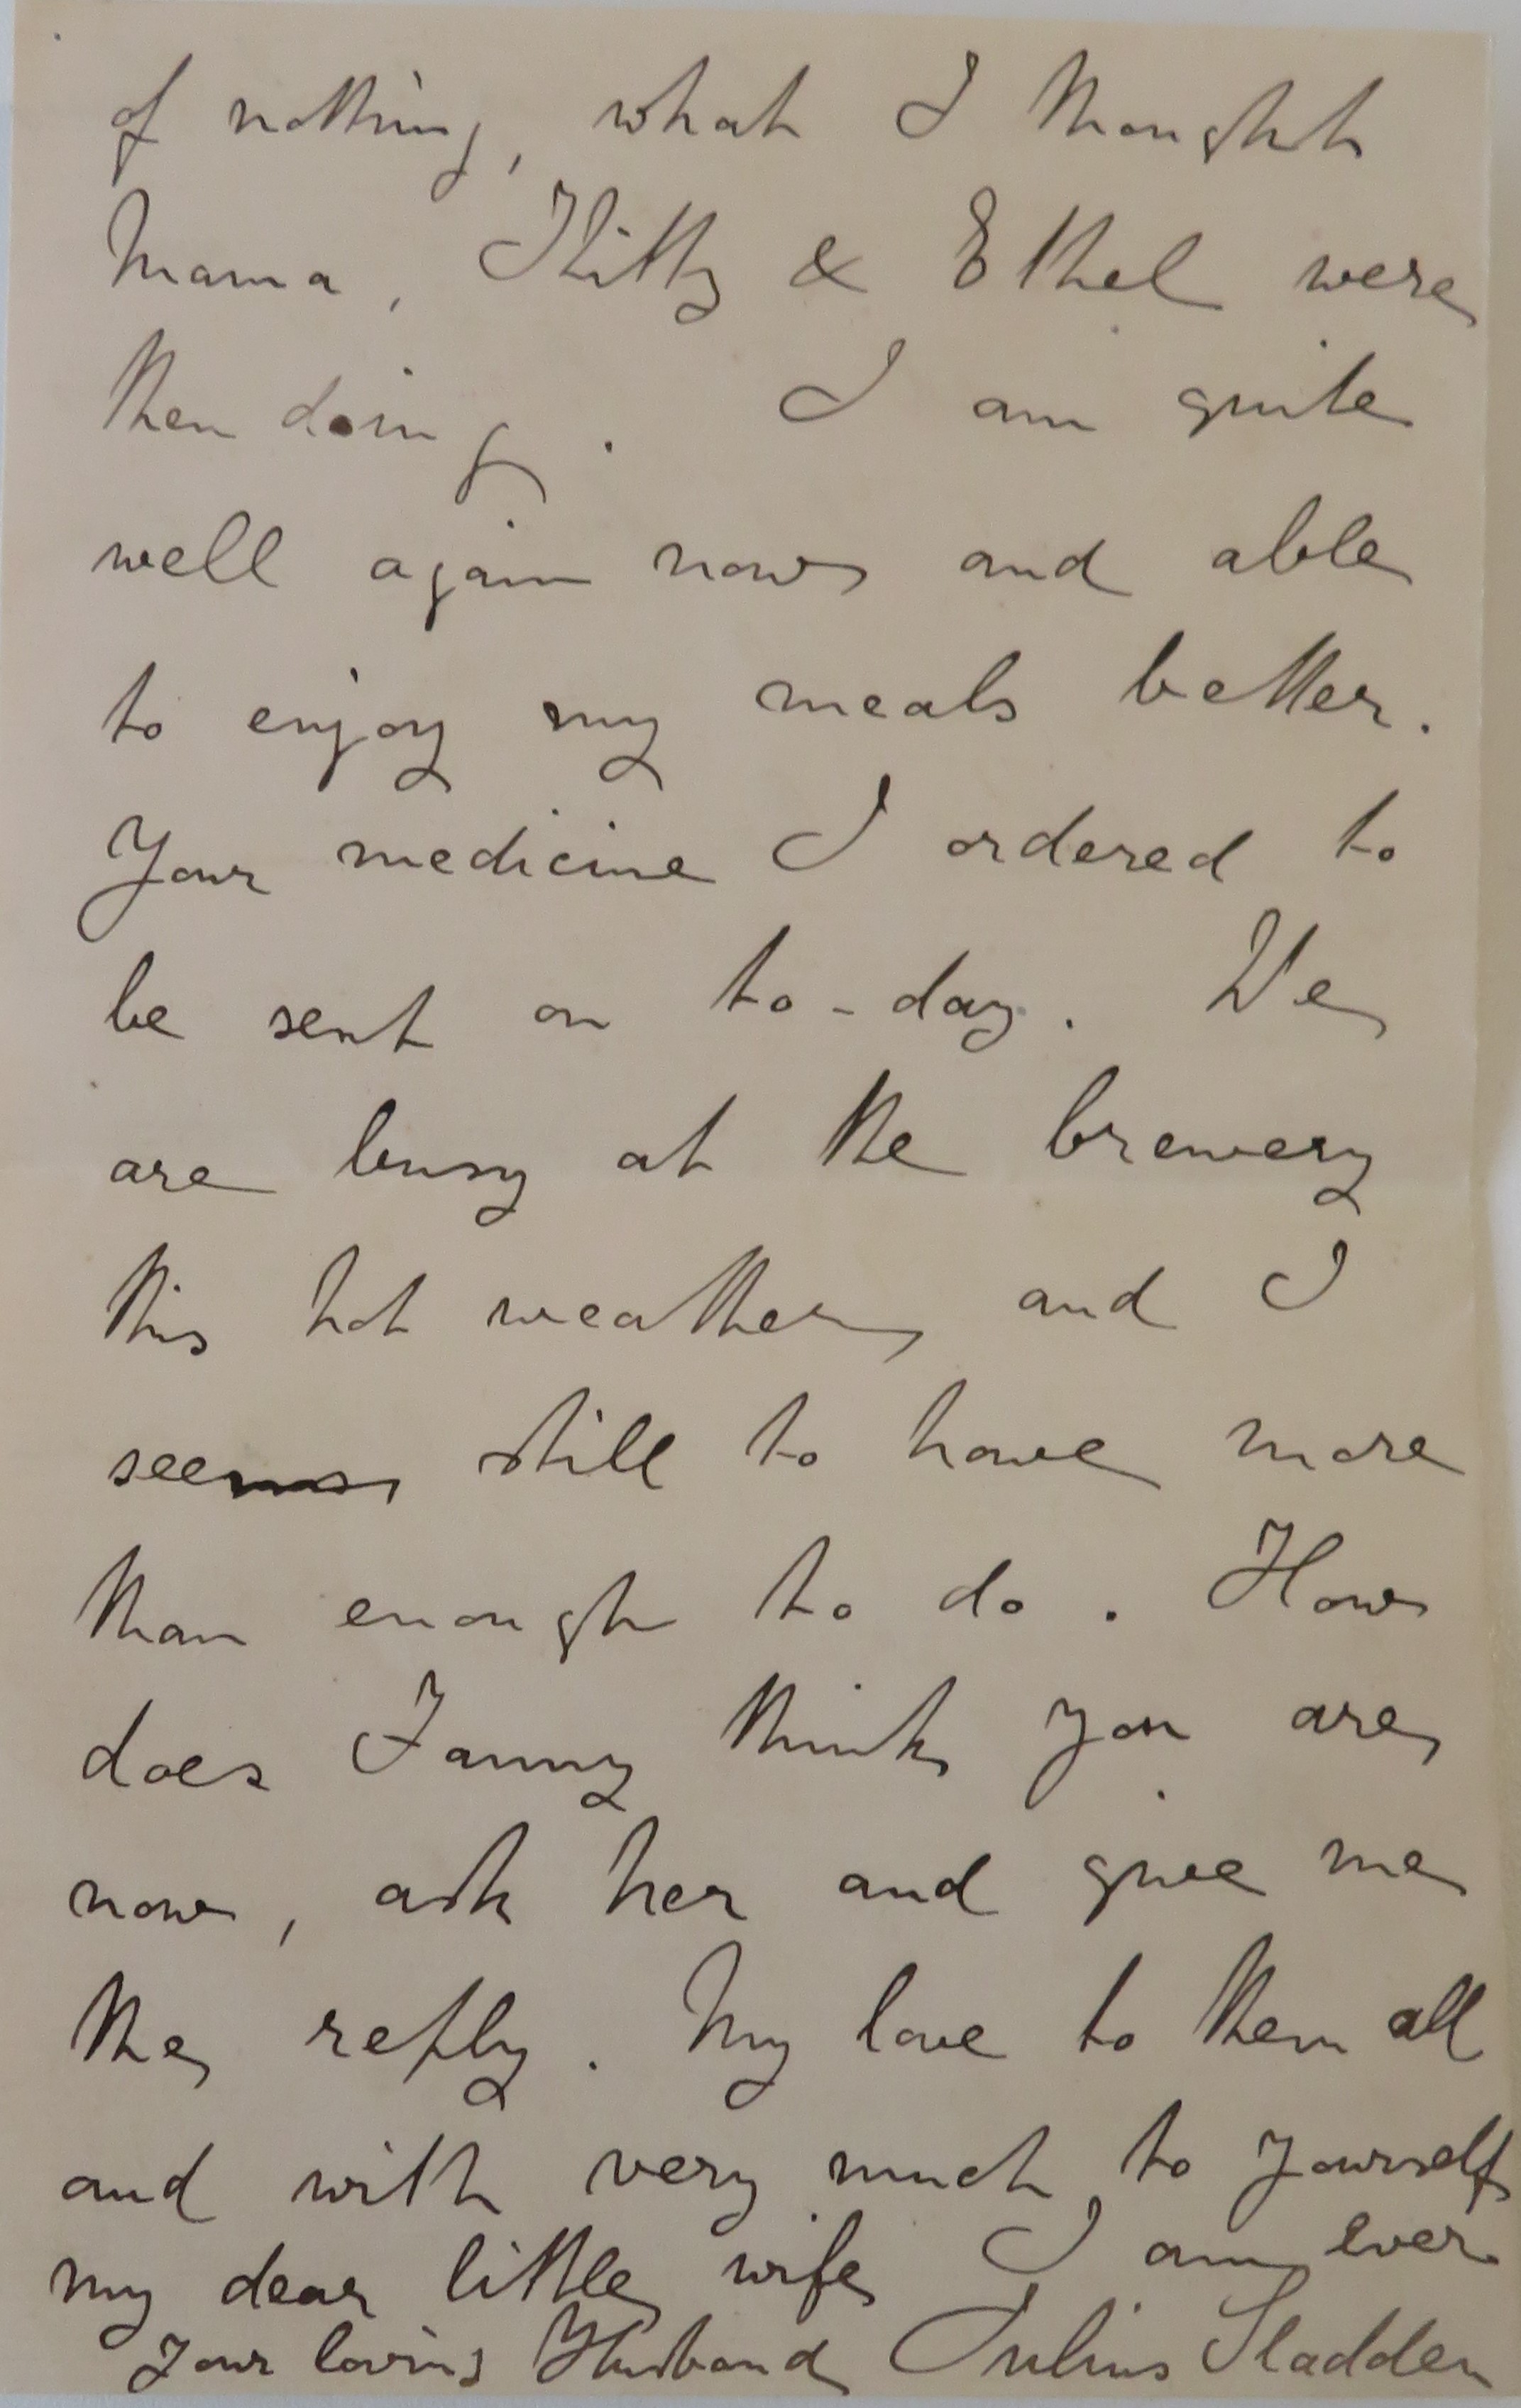 of nothing, what I thought
Mama, Kitty & Ethel were
then doing. I am quite
well again now and able
to enjoy my meals better.
Your medicine I ordered to
be sent on to-day. We
are busy at the brewery
this hot weather and I
seems still to have more
than enough to do. How
does Fanny think you are
now, ask her and give me
the reply. My love to them all
and with very much to yourself
my dear little wife I am ever
Your loving Husband Julius Sladden